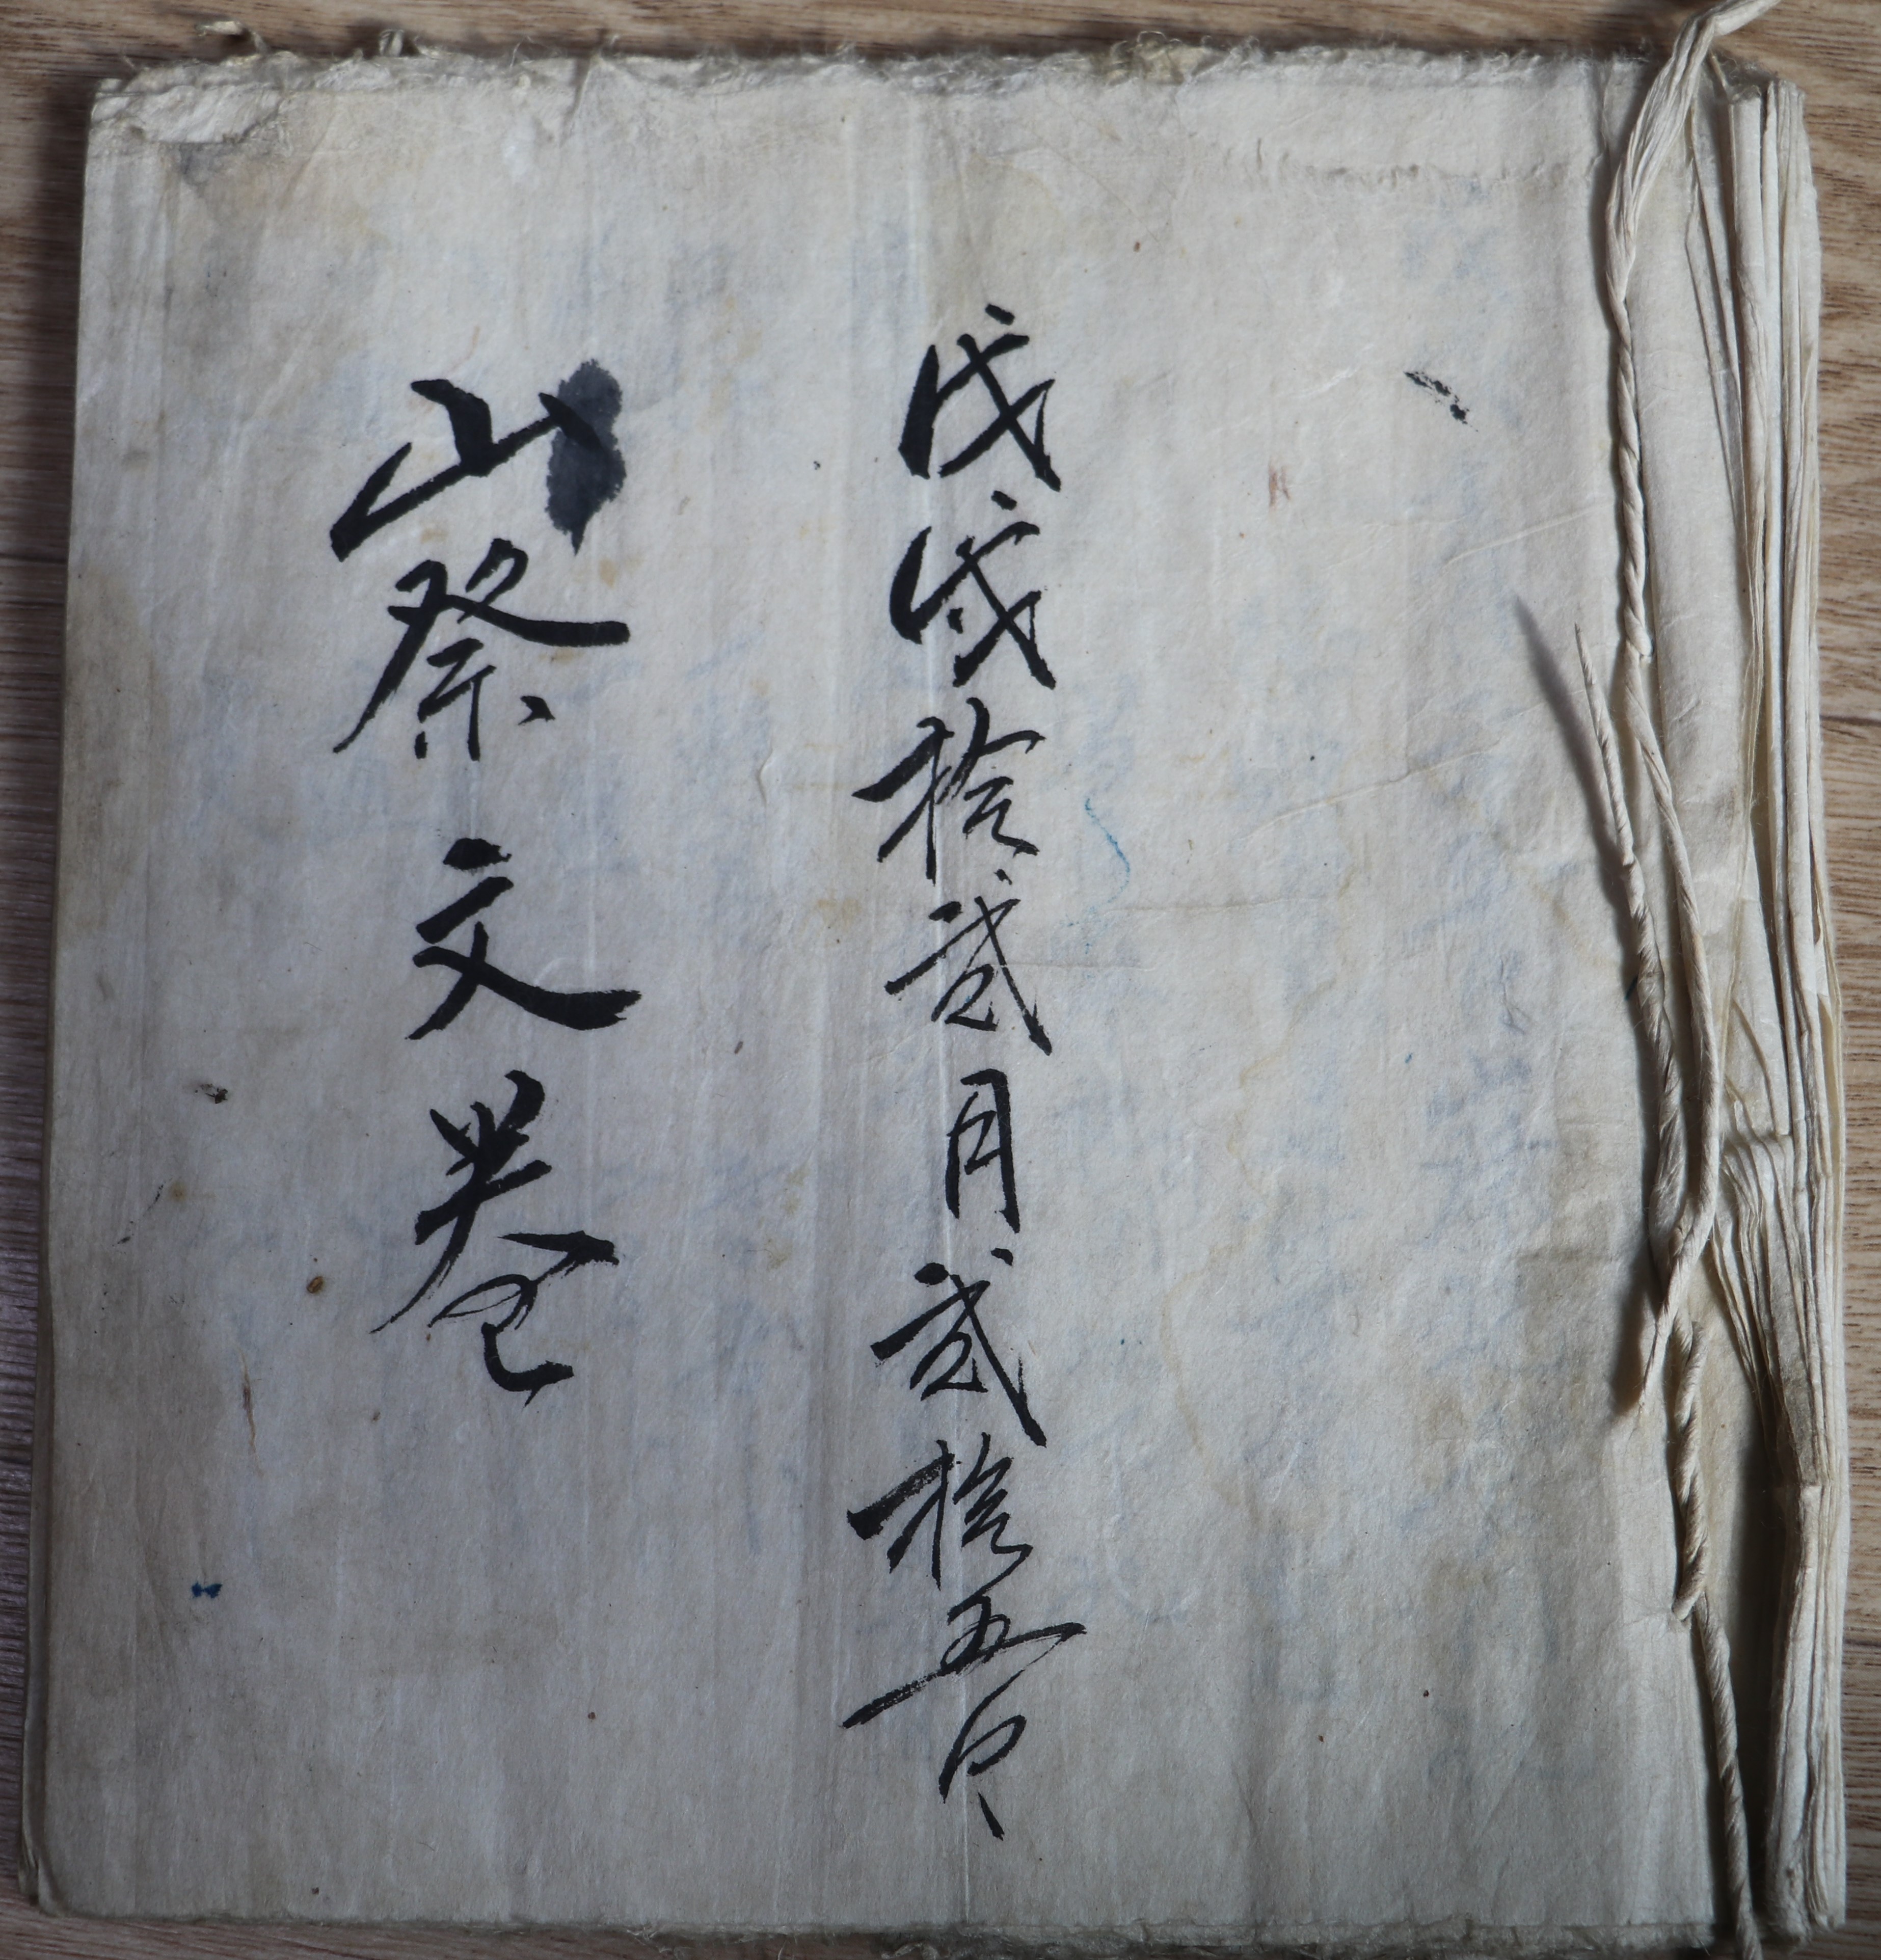 戊戌拾貳月貳拾五日
山祭文卷